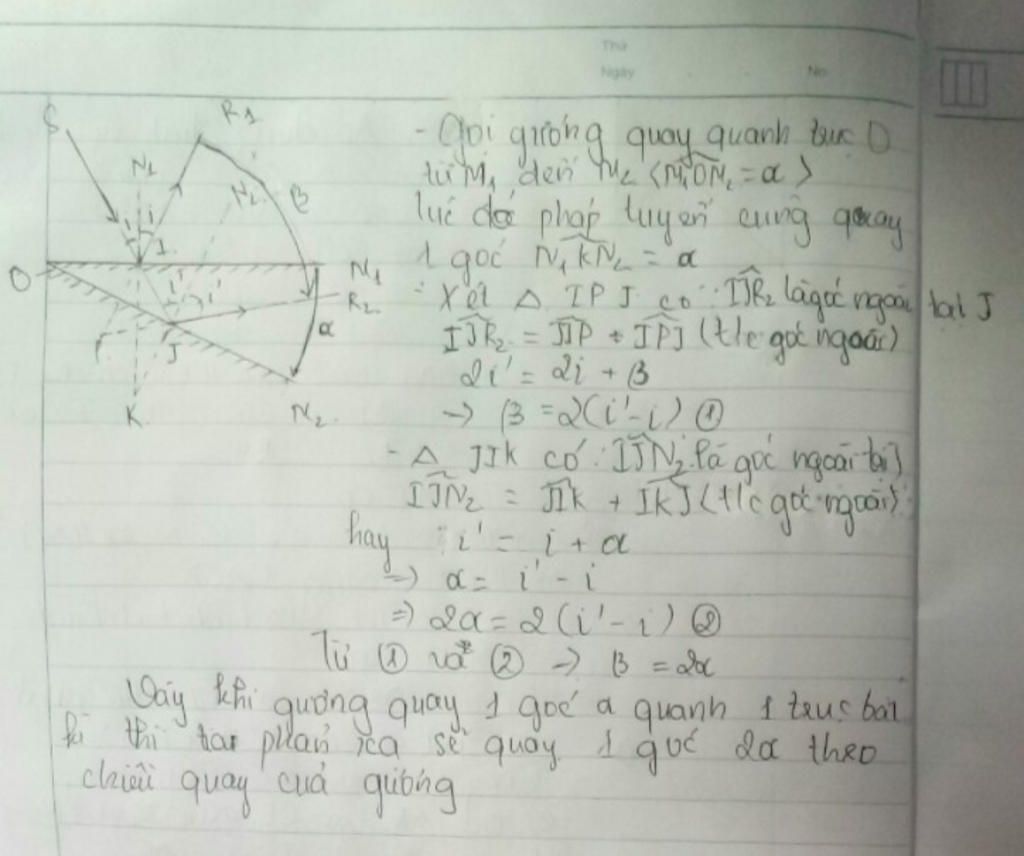 Thứ
Ngày
No
S
R1
N1
N2
β
i
i
I
O
i'
i'
N1
R2
α
J
K
N2
- Gọi gương quay quanh trục O
từ M1 đến M2 (M1OM2 = α)
lúc đó pháp tuyến cũng quay
1 góc N1KN2 = α
- Xét △ IPJ có: IJR2 là góc ngoài tại J
IJR2 = JIP + IPJ (t/c góc ngoài)
2i' = 2i + β
→ β = 2(i' - i) ①
- △ JIK có: IJN2 là góc ngoài tại J
IJN2 = JIK + IKJ (t/c góc ngoài)
hay i' = i + α
=> α = i' - i
=> 2α = 2(i' - i) ②
Từ ① và ② → β = 2α
Vậy khi gương quay 1 góc α quanh 1 trục bất
kì thì tia phản xạ sẽ quay 1 góc 2α theo
chiều quay của gương